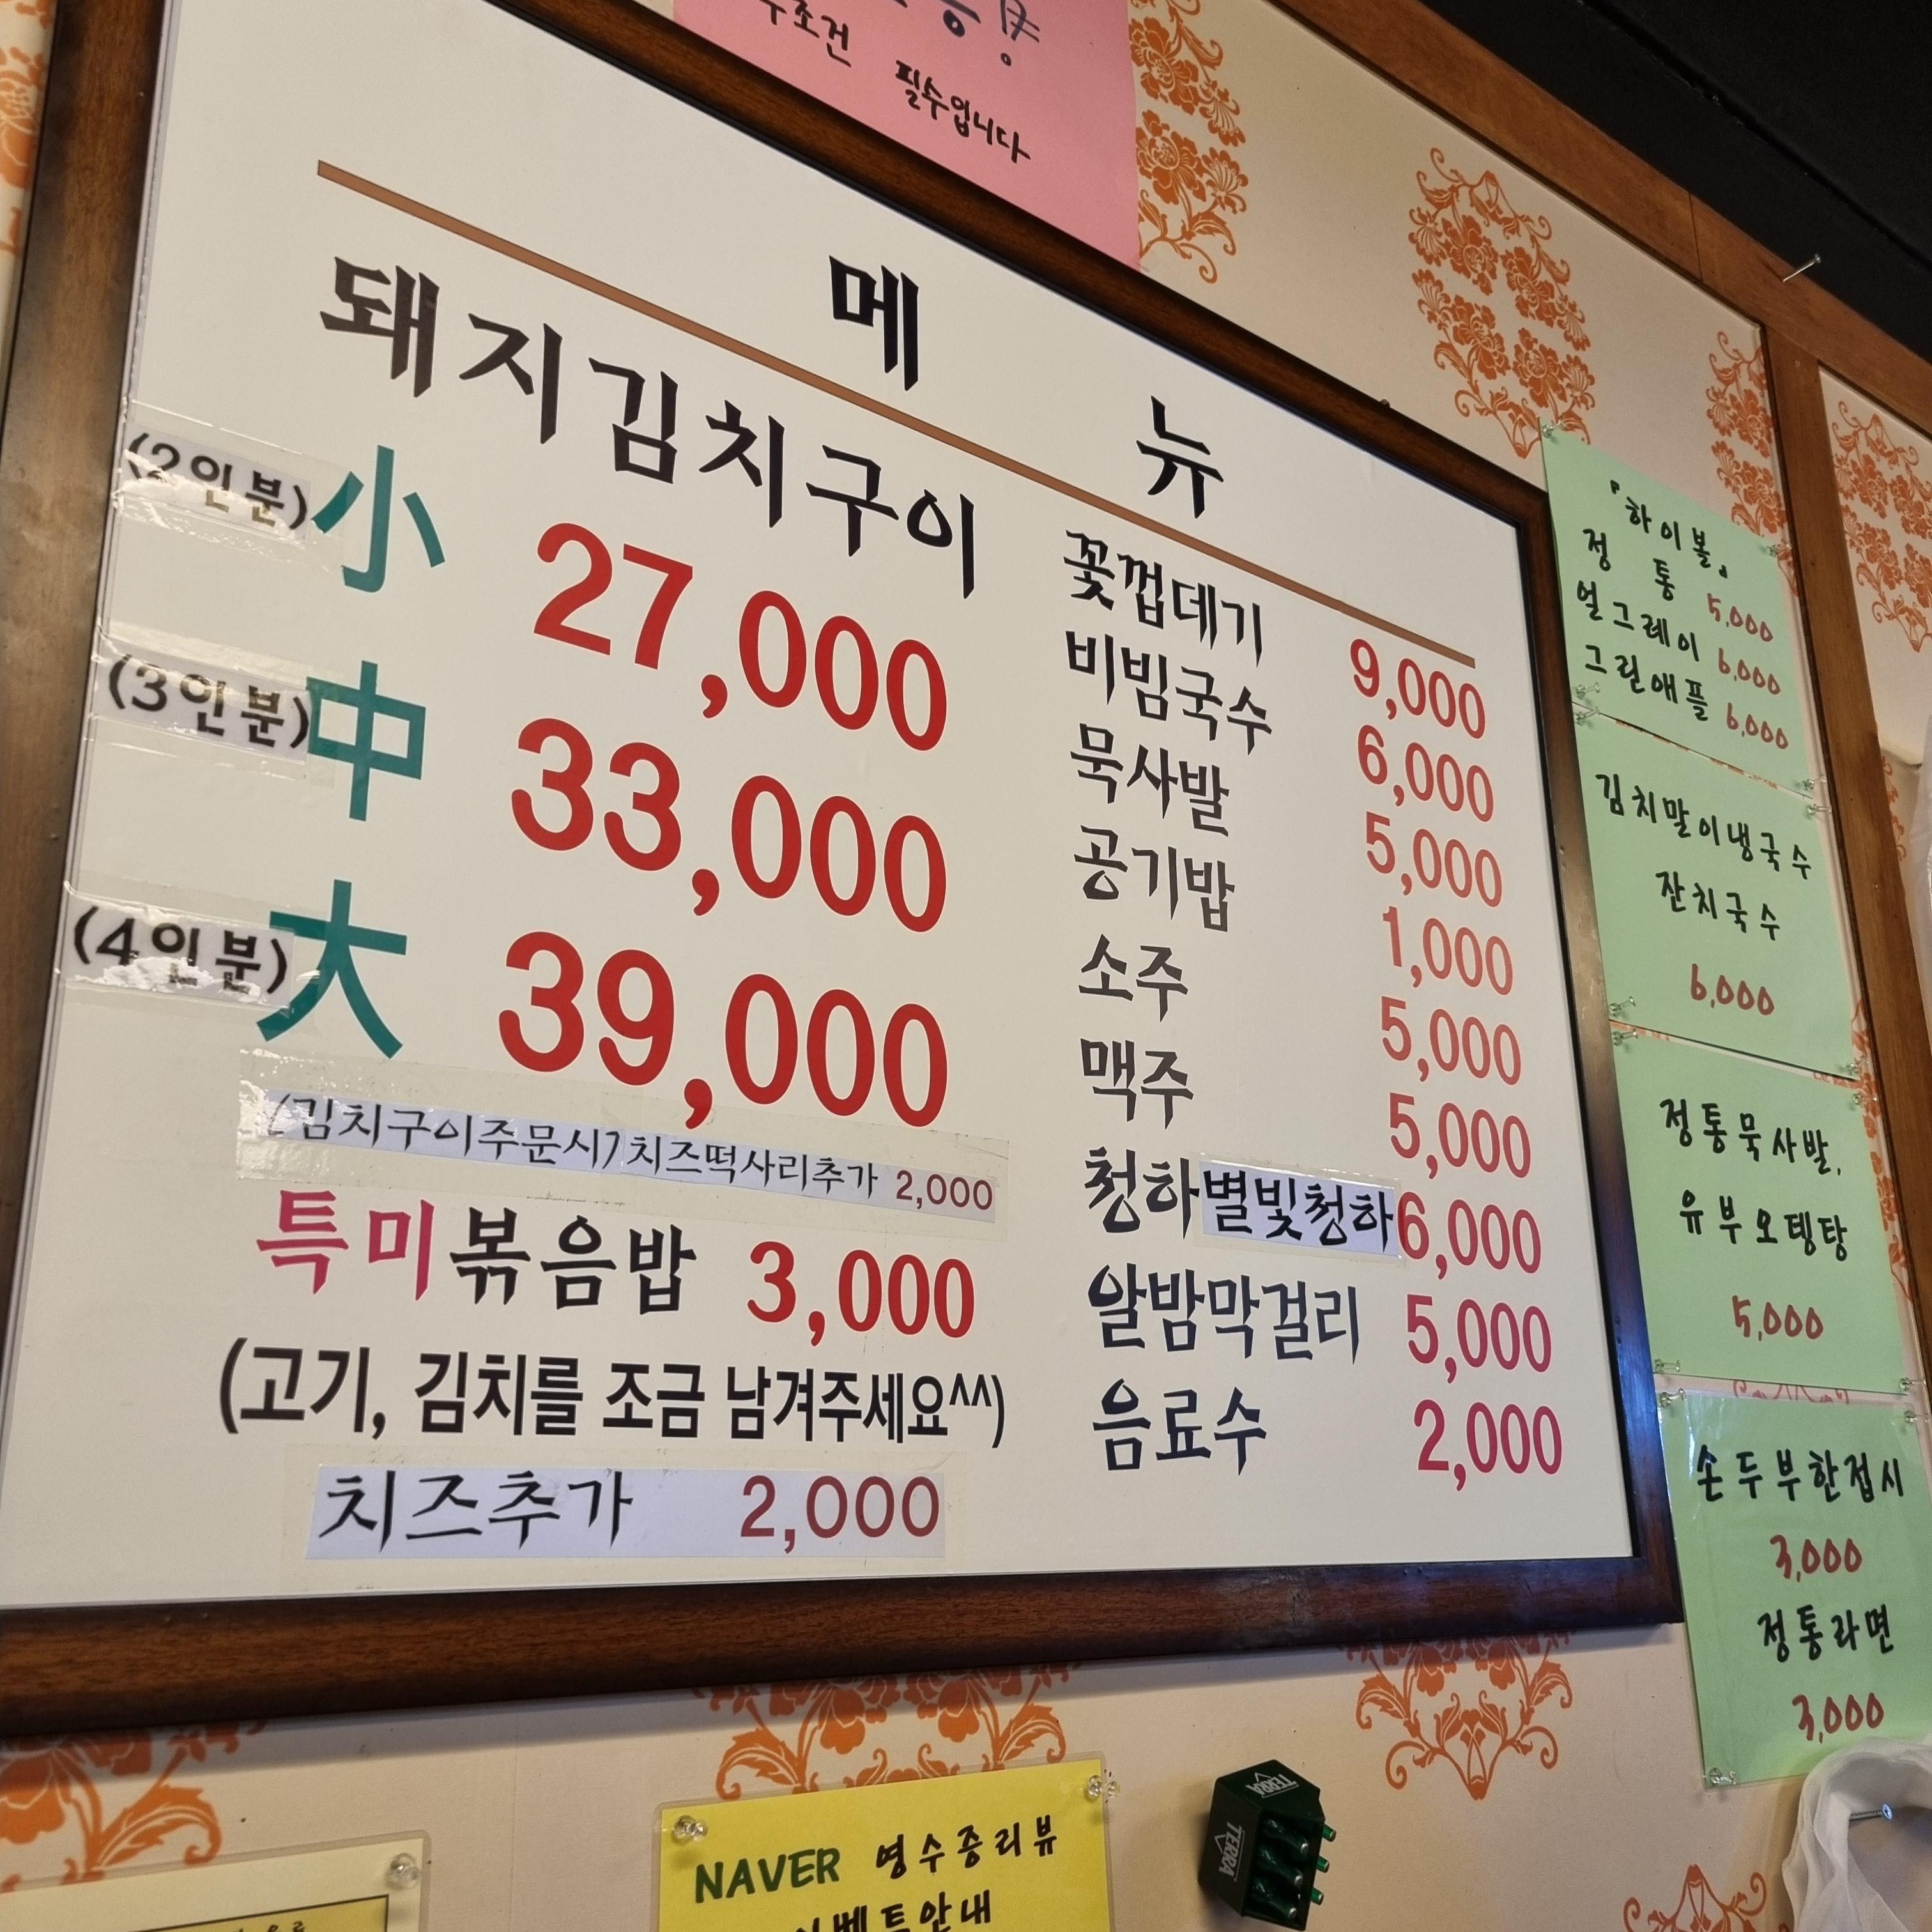 필수입니다
메 뉴
돼지김치구이
(2인분) 小 27,000
(3인분) 中 33,000
(4인분) 大 39,000
(김치구이주문시) 치즈떡사리추가 2,000
특미볶음밥 3,000
(고기, 김치를 조금 남겨주세요^^)
치즈추가 2,000
꽃껍데기 9,000
비빔국수 6,000
묵사발 5,000
공기밥 1,000
소주 5,000
맥주 5,000
청하별빛청하 6,000
알밤막걸리 5,000
음료수 2,000
『하이볼』
정통 5,000
얼그레이 6,000
그린애플 6,000
김치말이냉국수
잔치국수
6,000
정통묵사발,
유부오뎅탕
5,000
손두부한접시
3,000
정통라면
3,000
NAVER 영수증리뷰
이벤트안내
TERRA
TERRA